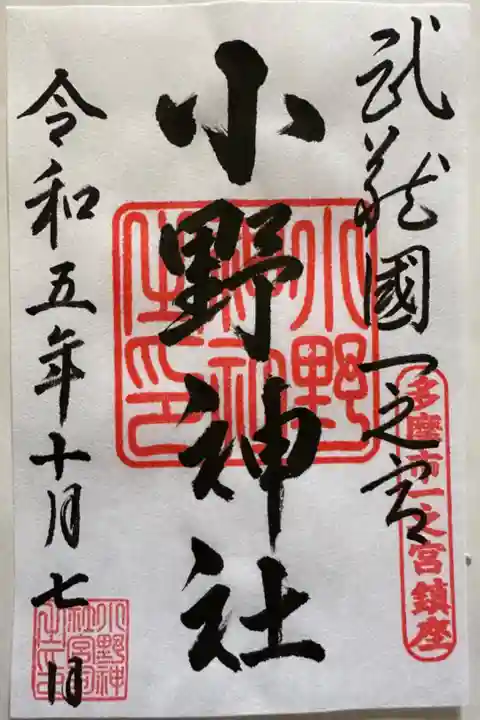 武蔵國一之宮
多摩市一之宮鎮座
小野神社
小野神社之印
令和五年十月七日